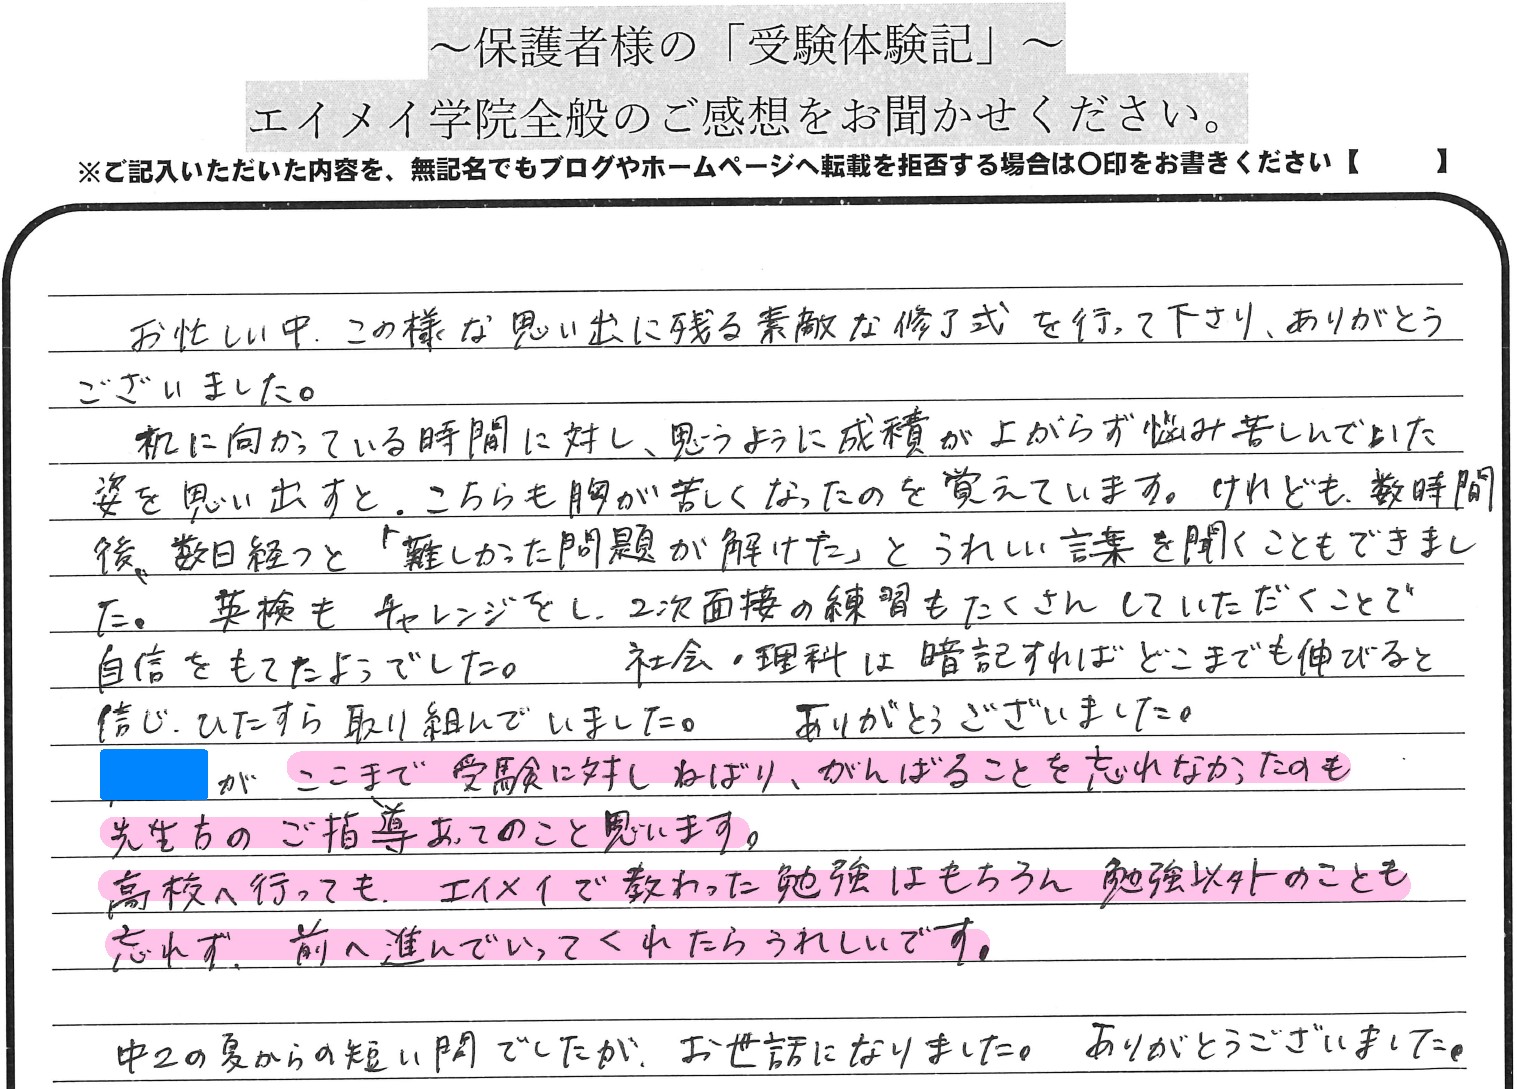 ～保護者様の「受験体験記」～
エイメイ学院全般のご感想をお聞かせください。
※ご記入いただいた内容を、無記名でもブログやホームページへ転載を拒否する場合は〇印をお書きください【　　】
お忙しい中、この様な思い出に残る素敵な修了式を行って下さり、ありがとう
ございました。
机に向かっている時間に対し、思うように成積が上がらず悩み苦しんでいた
姿を思い出すと、こちらも胸が苦しくなったのを覚えています。けれども、数時間
後、数日経つと「難しかった問題が解けた」とうれしい言葉を聞くこともできまし
た。英検もチャレンジをし、2次面接の練習もたくさんしていただくことで
自信をもてたようでした。　社会・理科は暗記すればどこまでも伸びると
信じ、ひたすら取り組んでいました。　ありがとうございました。
が ここまで受験に対しねばり、がんばることを忘れなかったのも
先生方のご指導あってのことと思います。
高校へ行っても、エイメイで教わった勉強はもちろん勉強以外のことも
忘れず、前へ進んでいってくれたらうれしいです。
中2の夏からの短い間でしたが、お世話になりました。　ありがとうございました。